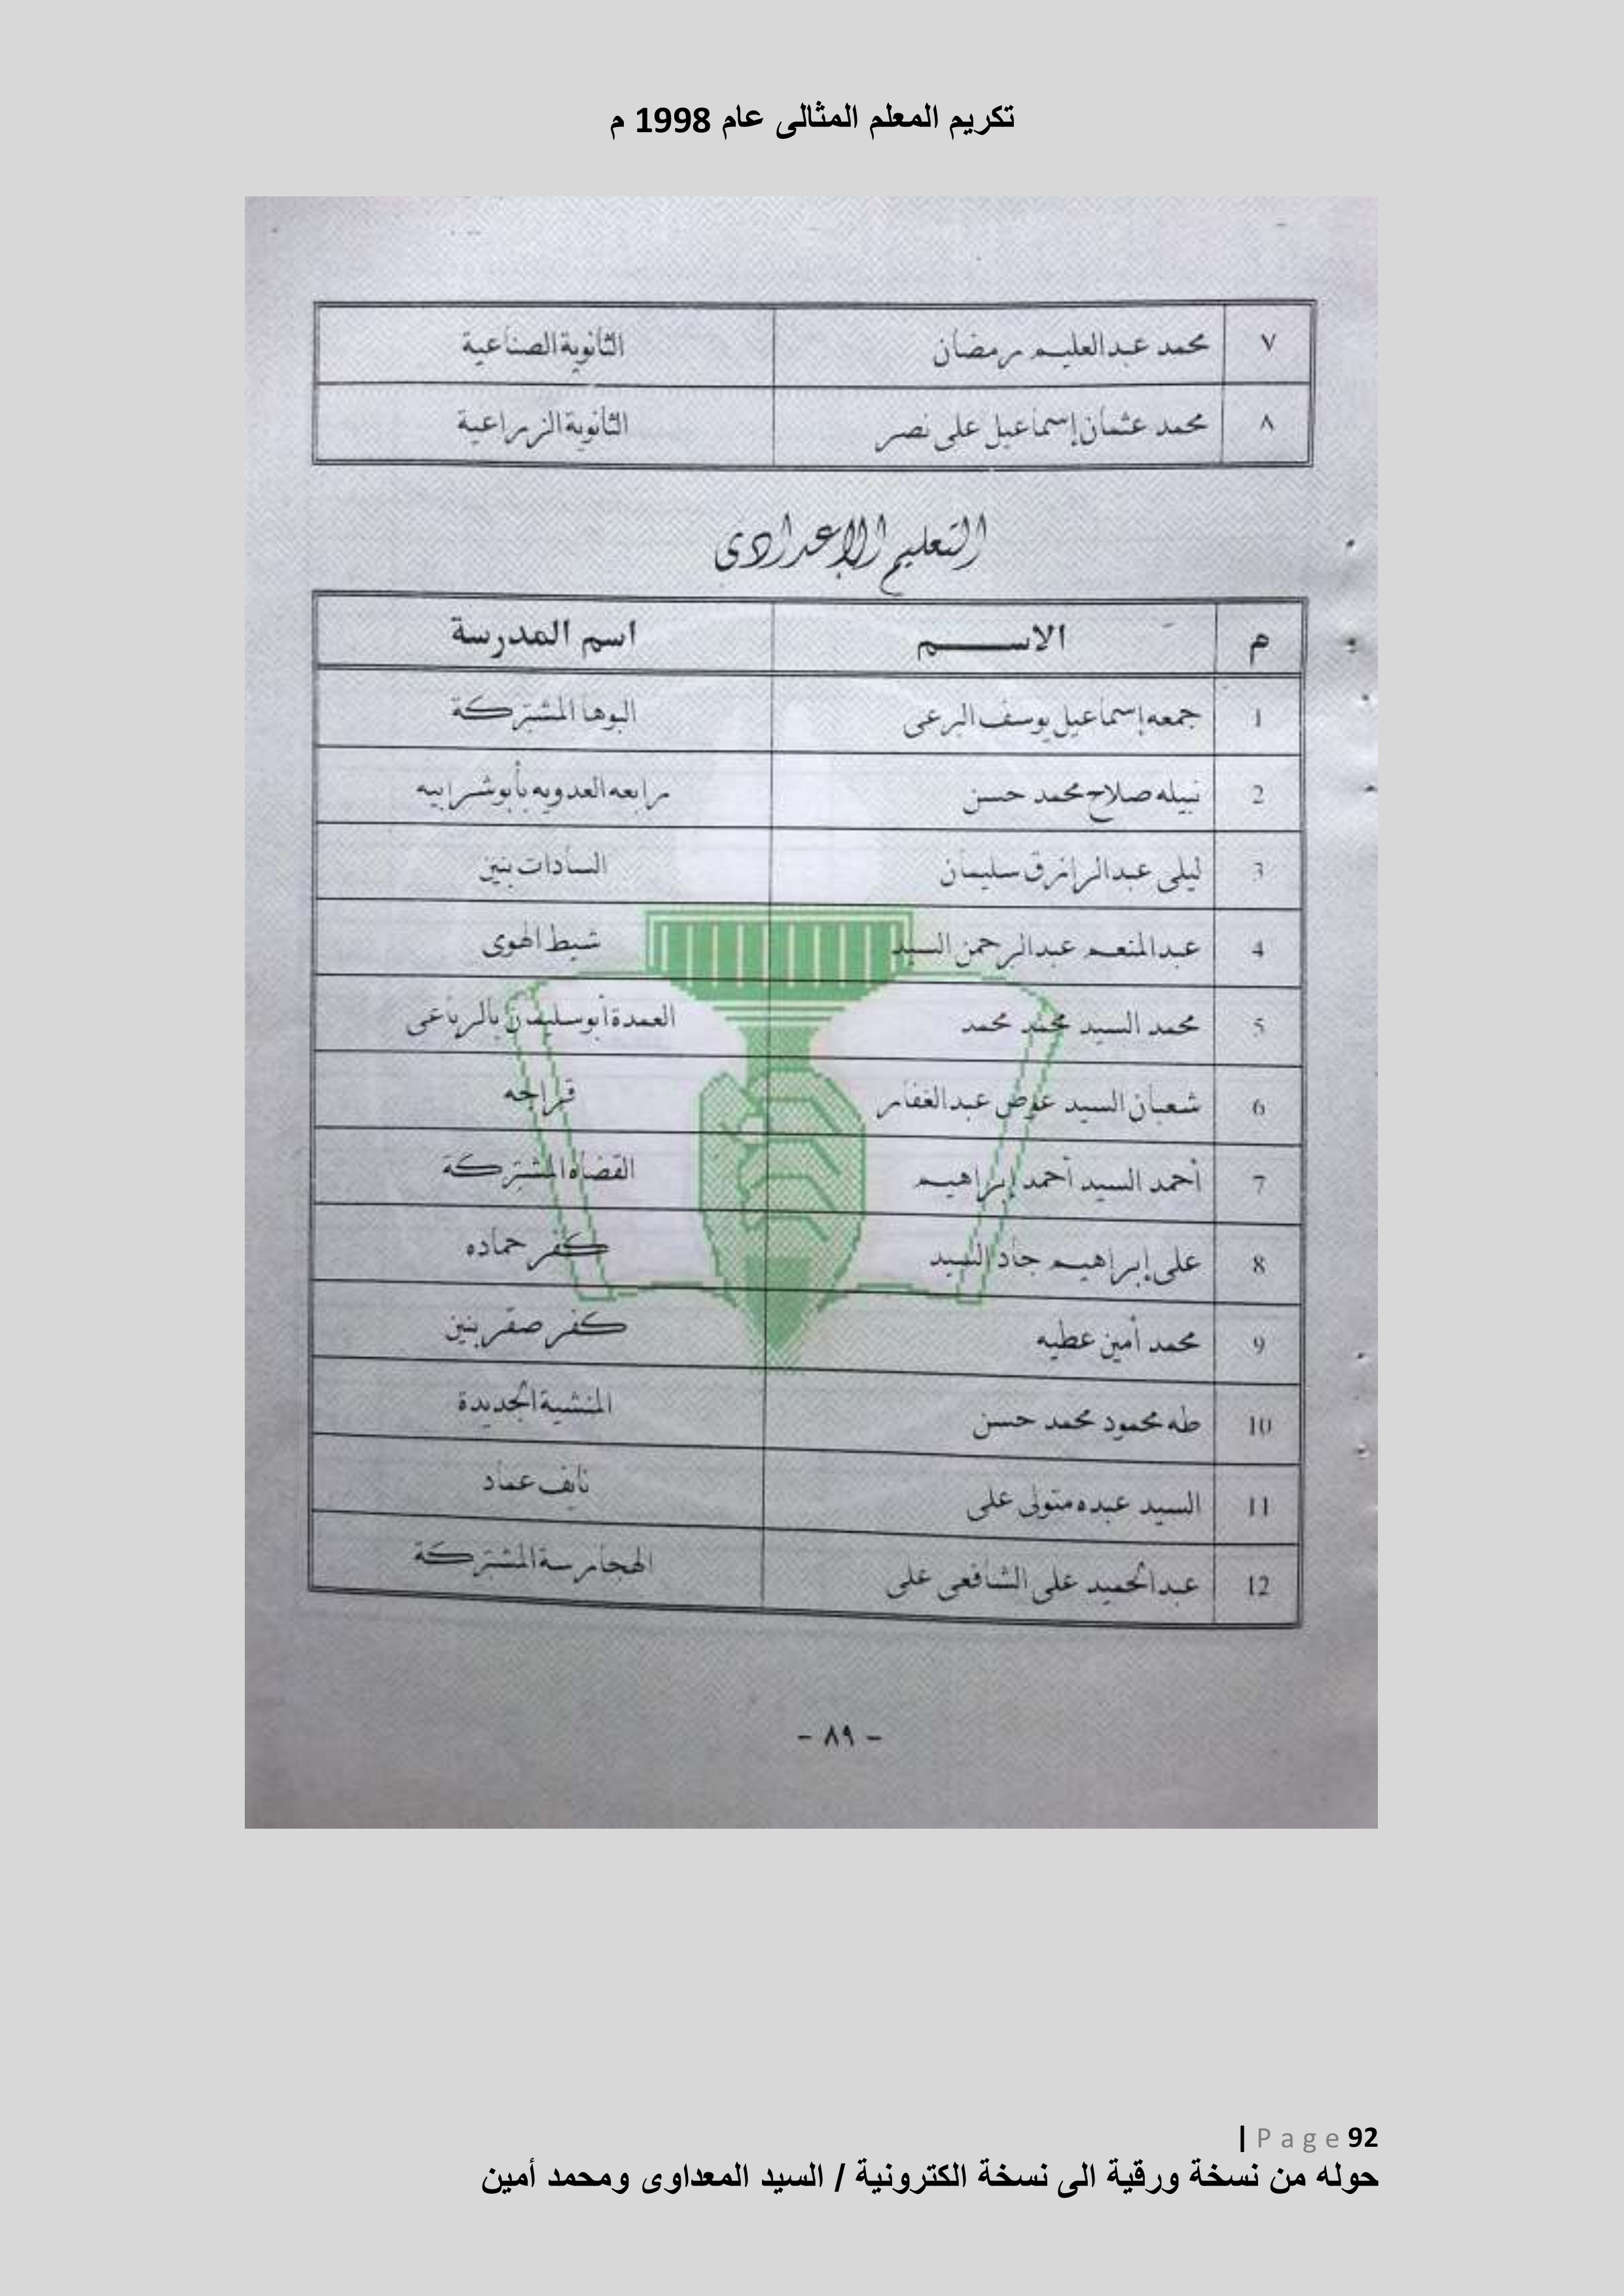 تكريم المعلم المثالى عام 1998 م
٧ محمد عبدالعليم رمضان الثانوية الصناعية
٨ محمد عثمان إسماعيل على نصر الثانوية الزراعية
التعليم الإعدادى
م الاســـــم اسم المدرسة
1 جمعه إسماعيل يوسف البرعى البوها المشتركة
2 نبيله صلاح محمد حسن رابعه العدويه بأبو شرابيه
3 ليلى عبدالرازق سليمان السادات بنين
4 عبدالمنعم عبدالرحمن السيد شيط الهوى
5 محمد السيد محمد محمد العمدة أبو سليمان بالرباعى
6 شعبان السيد عوض عبدالغفار قراجه
7 أحمد السيد أحمد إبراهيم القضاه المشتركة
8 على إبراهيم جاد السيد كفر حماده
9 محمد أمين عطيه كفر صقر بنين
10 طه محمود محمد حسن المنشية الجديدة
11 السيد عبده متولى على نايف عماد
12 عبدالحميد على الشافعى على الهجارسة المشتركة
- ٨٩ -
| Page 92
حوله من نسخة ورقية الى نسخة الكترونية / السيد المعداوى ومحمد أمين